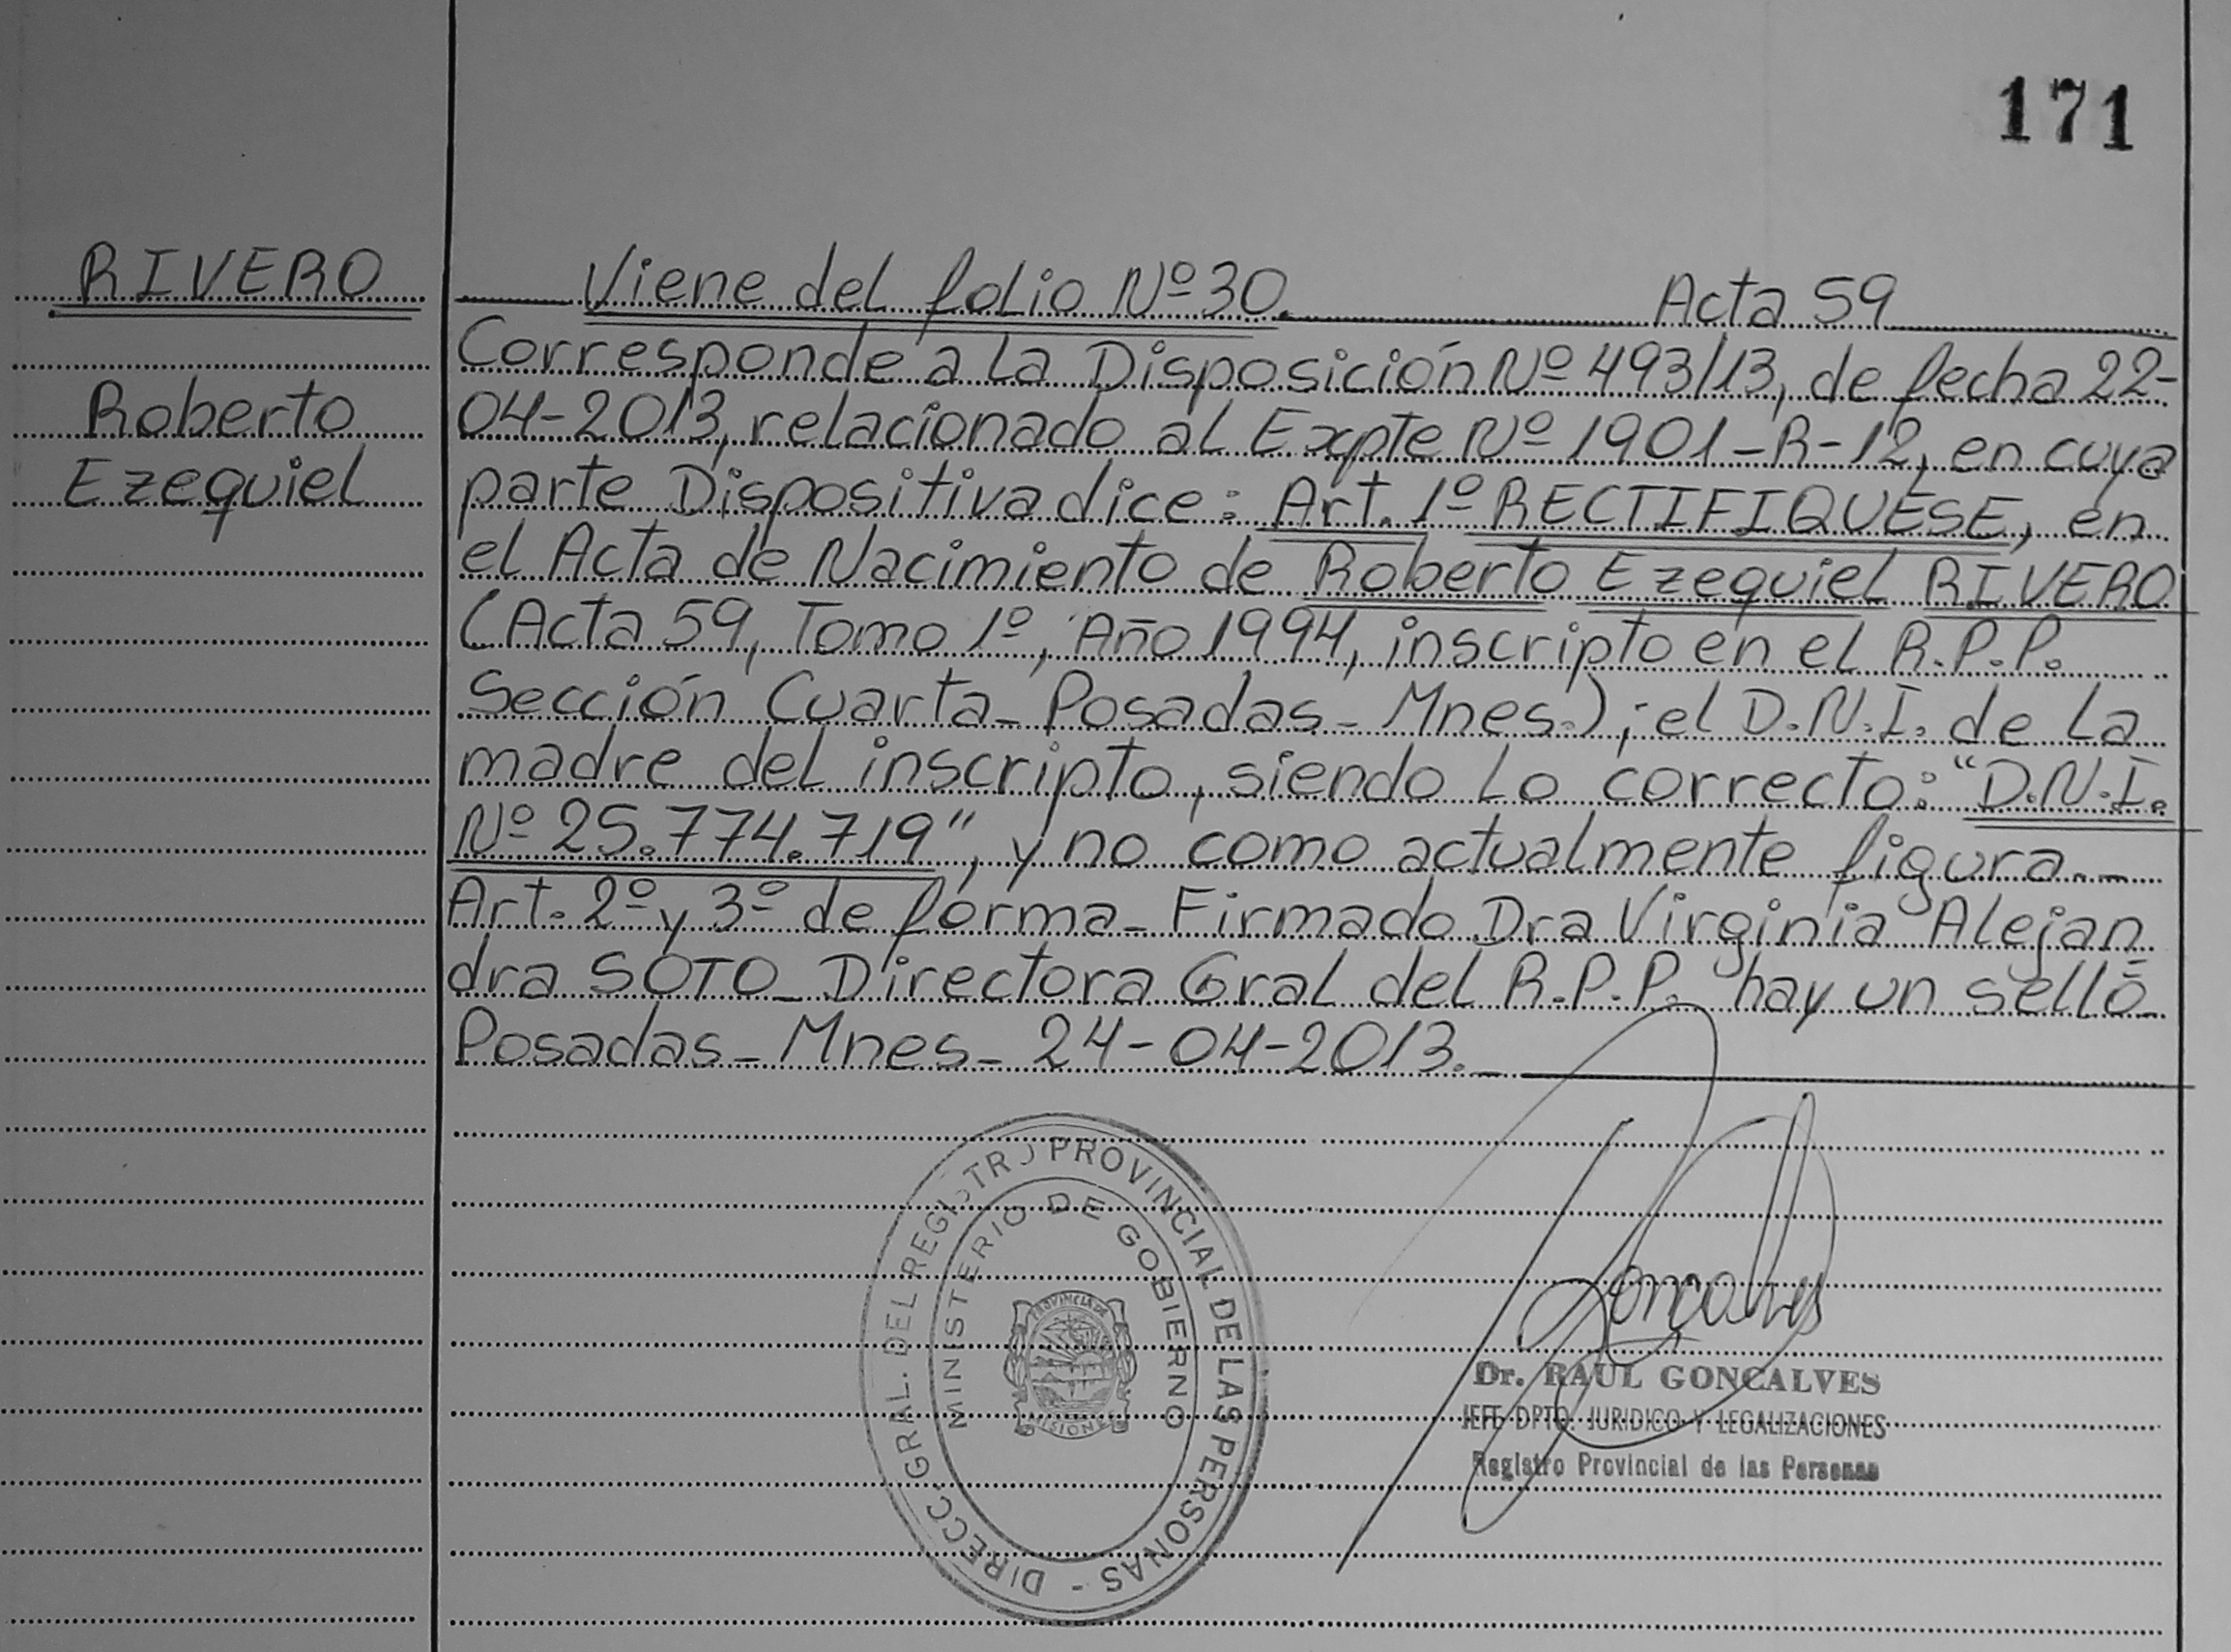 171
RIVERO
Roberto
Ezequiel
Viene del folio Nº 30. Acta 59
Corresponde a la Disposición Nº 493/13, de fecha 22-
04-2013, relacionado al Expte Nº 1901-R-12, en cuya
parte Dispositiva dice: Art. 1º RECTIFIQUESE, en
el Acta de Nacimiento de Roberto Ezequiel RIVERO
(Acta 59, Tomo 1º, Año 1994, inscripto en el R.P.P.
Sección Cuarta- Posadas- Mnes.); el D.N.I. de la
madre del inscripto, siendo lo correcto: "D.N.I.
Nº 25.774.719", y no como actualmente figura.-
Art. 2º y 3º de forma- Firmado Dra Virginia Alejan=
dra SOTO- Directora Gral del R.P.P. hay un sello-
Posadas- Mnes- 24-04-2013.-
DIRECC. GRAL. DEL REGISTRO PROVINCIAL DE LAS PERSONAS -
MINISTERIO DE GOBIERNO
PROVINCIA DE
MISIONES
Goncalves
Dr. RAUL GONCALVES
JEFE DPTO. JURIDICO Y LEGALIZACIONES
Registro Provincial de las Personas